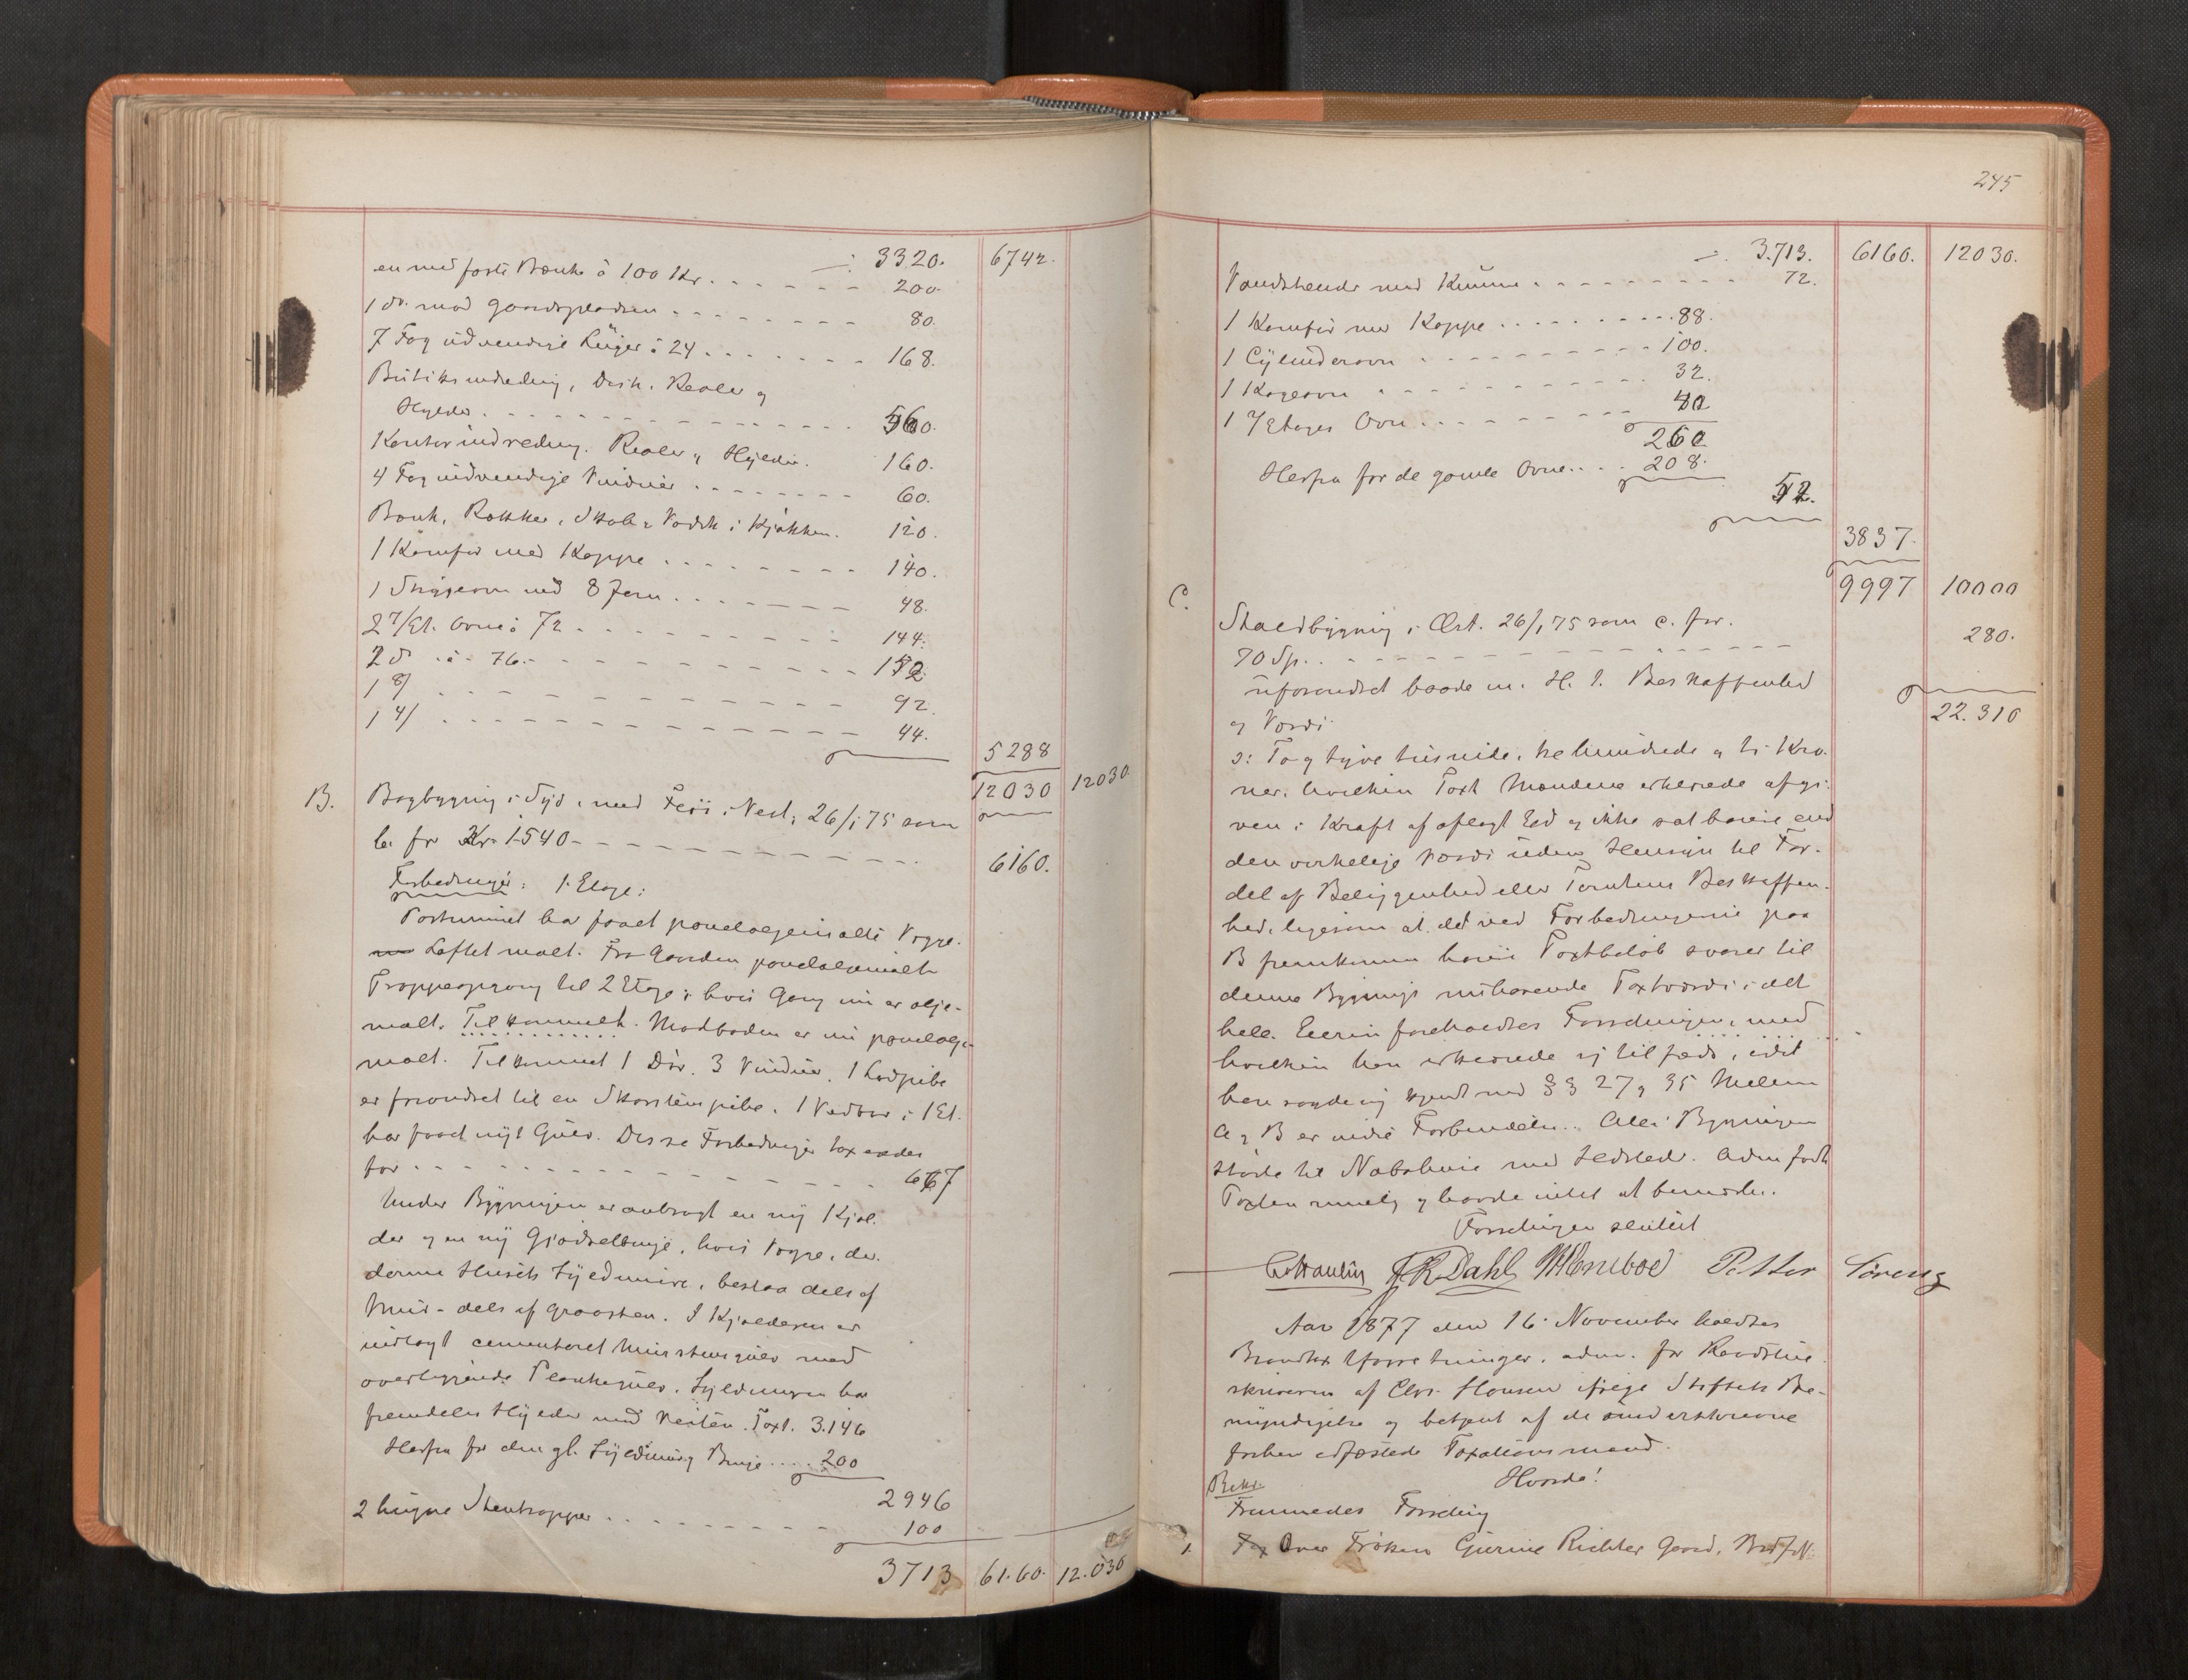 ÷ 3320. 6742.
en med faste Bænke à 100 Kr. 200.
1 do. mod Gaardspladsen 80.
7 Fag udvendige Luger à 24 168.
Butiksindredning, Disk, Reoler og
Hylder. 560.
Kontorindredning. Reoler og Hylder. 160.
4 Fag indvendige Vinduer 60.
Bænk, Rækker, Skab & Vadsk i Kjøkken. 120.
1 Komfur med Kappe 140.
1 Strygeovn med 8 Jern 48.
2 7/Et. Ovne à 72 144.
2 do. à 76. 152.
1 8/ 92.
1 4/ 44.
5288
12030 12030
B. Bagbygning i Syd, med Fløi i Vest, 26/1 75 som
b. for Kr. 1540 6160.
Forbedringer: 1. Etage:
Portrummet har faaet panelogemalte Vægge.
Loftet malt. Fra Gaarden panelogemalt
Trappeopgang til 2 Etage, hvis Gang nu er olje-
malt. Tilkommet. Madboden er nu panelog-
malt. Tilkommet 1 Dør. 3 Vinduer. 1 Lodpibe
er forandret til en Skorstenspibe. 1 Vedbod i 1 Et.
har faaet nyt Gulv. Disse Forbedringer taxeredes
for 667
Under Bygningen er anbragt en ny Kjæl-
der og en ny Gjødselbinge, hvis Vægge, der
danne Husets Syldmure, bestaa dels af
Mur- dels af Graasten. I Kjælderen er
indlagt cementeret Murstensgulv med
overliggende Plankegulv. Syldmuren har
fremdeles Hylder med Heisten. Taxt. 3.146
Herfra for den gl. Syldmur og Binge 200
2946
2 hugne Stentrapper 100
3713 6160. 12.030
245
÷ 3.713. 6160. 12030.
Vandstender med Kumme 72.
1 Komfur med Kappe 88.
1 Cylinderovn 100.
1 Kogeovn 32.
1 7 Etages Ovn 40
260
Herfra for de gamle Ovne 208.
52.
3837.
9997 10000
C. Staldbygning i Øst. 26/1 75 som c. for
70 Sp. 280.
uforandret baade m. H. t. Beskaffenhed
og Værdi 22.310
ɔ: To og tyve tusinde, tre hundrede og ti Kro-
ner, hvilken Taxt Mændene erklærede afgi-
ven i Kraft af aflagt Ed og ikke sat høiere end
den virkelige Værdi uden Hensyn til For-
del af Beliggenhed eller Tomtens Beskaffen-
hed, ligesom at det ved Forbedringerne paa
B fremkomne høie Taxtbeløb svarer til
denne Bygnings nuhavende Taxtværdi i det
hele. Eierin foreholdtes Forretningen, med
hvilken han erklærede sig tilfreds, idet
han sagde sig kjendt med §§ 27 og 35. Mellem
A og B er indre Forbindelse. Alle Bygningen
støde til Nabohuse med Ildsted. Adm. fandt
Taxten rimelig og havde intet at bemærke.
Forretningen sluttet
JRDahl WHornboe Petter Søreng
Aar 1877 den 16. November holdtes
Brandtaxtforretninger, adm. for Raadstue-
skriveren af Chr. Hansen ifølge Stiftets Be-
myndigelse og betjent af de underskrevne
forhen edfæstede Taxationsmænd.
Hvorda!
Fremmedes Forretning
1. Over Frøken Gurine Richter Gaard,